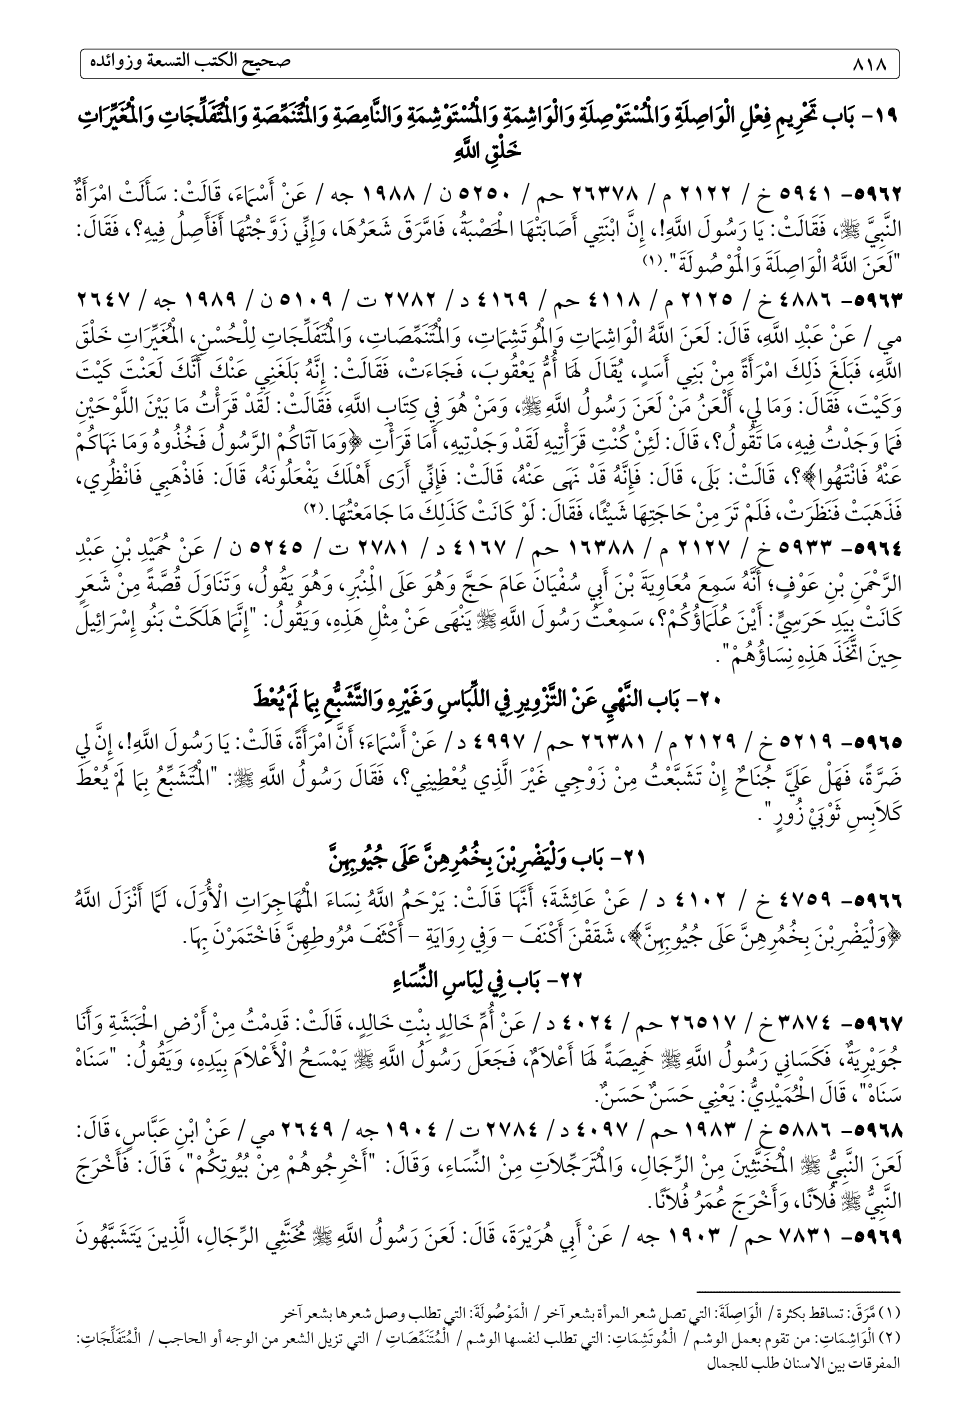 ٨١٨ صحيح الكتب التسعة وزوائده
١٩- بَاب تَحْرِيمِ فِعْلِ الْوَاصِلَةِ وَالْمُسْتَوْصِلَةِ وَالْوَاشِمَةِ وَالْمُسْتَوْشِمَةِ وَالنَّامِصَةِ وَالْمُتَنَمِّصَةِ وَالْمُتَفَلِّجَاتِ وَالْمُغَيِّرَاتِ
خَلْقِ اللَّهِ
٥٩٦٢- ٥٩٤١ خ / ٢١٢٢ م / ٢٦٣٧٨ حم / ٥٢٥٠ ن / ١٩٨٨ جه / عَنْ أَسْمَاءَ، قَالَتْ: سَأَلَتْ امْرَأَةٌ
النَّبِيَّ ﷺ، فَقَالَتْ: يَا رَسُولَ اللَّهِ!، إِنَّ ابْنَتِي أَصَابَتْهَا الْحَصْبَةُ، فَامَّرَقَ شَعَرُهَا، وَإِنِّي زَوَّجْتُهَا أَفَأَصِلُ فِيهِ؟، فَقَالَ:
"لَعَنَ اللَّهُ الْوَاصِلَةَ وَالْمَوْصُولَةَ".(١)
٥٩٦٣- ٤٨٨٦ خ / ٢١٢٥ م / ٤١١٨ حم / ٤١٦٩ د / ٢٧٨٢ ت / ٥١٠٩ ن / ١٩٨٩ جه / ٢٦٤٧
مي / عَنْ عَبْدِ اللَّهِ، قَالَ: لَعَنَ اللَّهُ الْوَاشِمَاتِ وَالْمُوتَشِمَاتِ، وَالْمُتَنَمِّصَاتِ، وَالْمُتَفَلِّجَاتِ لِلْحُسْنِ، الْمُغَيِّرَاتِ خَلْقَ
اللَّهِ، فَبَلَغَ ذَلِكَ امْرَأَةً مِنْ بَنِي أَسَدٍ، يُقَالُ لَهَا أُمُّ يَعْقُوبَ، فَجَاءَتْ، فَقَالَتْ: إِنَّهُ بَلَغَنِي عَنْكَ أَنَّكَ لَعَنْتَ كَيْتَ
وَكَيْتَ، فَقَالَ: وَمَا لِي، أَلْعَنُ مَنْ لَعَنَ رَسُولُ اللَّهِ ﷺ، وَمَنْ هُوَ فِي كِتَابِ اللَّهِ، فَقَالَتْ: لَقَدْ قَرَأْتُ مَا بَيْنَ اللَّوْحَيْنِ
فَمَا وَجَدْتُ فِيهِ، مَا تَقُولُ؟، قَالَ: لَئِنْ كُنْتِ قَرَأْتِيهِ لَقَدْ وَجَدْتِيهِ، أَمَا قَرَأْتِ ﴿وَمَا آتَاكُمْ الرَّسُولُ فَخُذُوهُ وَمَا نَهَاكُمْ
عَنْهُ فَانْتَهُوا﴾؟، قَالَتْ: بَلَى، قَالَ: فَإِنَّهُ قَدْ نَهَى عَنْهُ، قَالَتْ: فَإِنِّي أَرَى أَهْلَكَ يَفْعَلُونَهُ، قَالَ: فَاذْهَبِي فَانْظُرِي،
فَذَهَبَتْ فَنَظَرَتْ، فَلَمْ تَرَ مِنْ حَاجَتِهَا شَيْئًا، فَقَالَ: لَوْ كَانَتْ كَذَلِكَ مَا جَامَعْتُهَا.(٢)
٥٩٦٤- ٥٩٣٣ خ / ٢١٢٧ م / ١٦٣٨٨ حم / ٤١٦٧ د / ٢٧٨١ ت / ٥٢٤٥ ن / عَنْ حُمَيْدِ بْنِ عَبْدِ
الرَّحْمَنِ بْنِ عَوْفٍ؛ أَنَّهُ سَمِعَ مُعَاوِيَةَ بْنَ أَبِي سُفْيَانَ عَامَ حَجَّ وَهُوَ عَلَى الْمِنْبَرِ، وَهُوَ يَقُولُ، وَتَنَاوَلَ قُصَّةً مِنْ شَعَرٍ
كَانَتْ بِيَدِ حَرَسِيٍّ: أَيْنَ عُلَمَاؤُكُمْ؟، سَمِعْتُ رَسُولَ اللَّهِ ﷺ يَنْهَى عَنْ مِثْلِ هَذِهِ، وَيَقُولُ: "إِنَّمَا هَلَكَتْ بَنُو إِسْرَائِيلَ
حِينَ اتَّخَذَ هَذِهِ نِسَاؤُهُمْ".
٢٠- بَاب النَّهْيِ عَنْ التَّزْوِيرِ فِي اللِّبَاسِ وَغَيْرِهِ وَالتَّشَبُّعِ بِمَا لَمْ يُعْطَ
٥٩٦٥- ٥٢١٩ خ / ٢١٢٩ م / ٢٦٣٨١ حم / ٤٩٩٧ د / عَنْ أَسْمَاءَ؛ أَنَّ امْرَأَةً، قَالَتْ: يَا رَسُولَ اللَّهِ!، إِنَّ لِي
ضَرَّةً، فَهَلْ عَلَيَّ جُنَاحٌ إِنْ تَشَبَّعْتُ مِنْ زَوْجِي غَيْرَ الَّذِي يُعْطِينِي؟، فَقَالَ رَسُولُ اللَّهِ ﷺ: "الْمُتَشَبِّعُ بِمَا لَمْ يُعْطَ
كَلَابِسِ ثَوْبَيْ زُورٍ".
٢١- بَاب وَلْيَضْرِبْنَ بِخُمُرِهِنَّ عَلَى جُيُوبِهِنَّ
٥٩٦٦- ٤٧٥٩ خ / ٤١٠٢ د / عَنْ عَائِشَةَ؛ أَنَّهَا قَالَتْ: يَرْحَمُ اللَّهُ نِسَاءَ الْمُهَاجِرَاتِ الْأُوَلَ، لَمَّا أَنْزَلَ اللَّهُ
﴿وَلْيَضْرِبْنَ بِخُمُرِهِنَّ عَلَى جُيُوبِهِنَّ﴾، شَقَقْنَ أَكْنَفَ – وَفِي رِوَايَةِ – أَكْثَفَ مُرُوطِهِنَّ فَاخْتَمَرْنَ بِهَا.
٢٢- بَاب فِي لِبَاسِ النِّسَاءِ
٥٩٦٧- ٣٨٧٤ خ / ٢٦٥١٧ حم / ٤٠٢٤ د / عَنْ أُمِّ خَالِدٍ بِنْتِ خَالِدٍ، قَالَتْ: قَدِمْتُ مِنْ أَرْضِ الْحَبَشَةِ وَأَنَا
جُوَيْرِيَةٌ، فَكَسَانِي رَسُولُ اللَّهِ ﷺ خَمِيصَةً لَهَا أَعْلَامٌ، فَجَعَلَ رَسُولُ اللَّهِ ﷺ يَمْسَحُ الْأَعْلَامَ بِيَدِهِ، وَيَقُولُ: "سَنَاهْ
سَنَاهْ"، قَالَ الْحُمَيْدِيُّ: يَعْنِي حَسَنٌ حَسَنٌ.
٥٩٦٨- ٥٨٨٦ خ / ١٩٨٣ حم / ٤٠٩٧ د / ٢٧٨٤ ت / ١٩٠٤ جه / ٢٦٤٩ مي / عَنْ ابْنِ عَبَّاسٍ، قَالَ:
لَعَنَ النَّبِيُّ ﷺ الْمُخَنَّثِينَ مِنْ الرِّجَالِ، وَالْمُتَرَجِّلَاتِ مِنْ النِّسَاءِ، وَقَالَ: "أَخْرِجُوهُمْ مِنْ بُيُوتِكُمْ"، قَالَ: فَأَخْرَجَ
النَّبِيُّ ﷺ فُلَانًا، وَأَخْرَجَ عُمَرُ فُلَانًا.
٥٩٦٩- ٧٨٣١ حم / ١٩٠٣ جه / عَنْ أَبِي هُرَيْرَةَ، قَالَ: لَعَنَ رَسُولُ اللَّهِ ﷺ مُخَنَّثِي الرِّجَالِ، الَّذِينَ يَتَشَبَّهُونَ
(١) مَّرَقَ: تساقط بكثرة / الْوَاصِلَةَ: التي تصل شعر المرأة بشعر آخر / الْمَوْصُولَةَ: التي تطلب وصل شعرها بشعر آخر
(٢) الْوَاشِمَاتِ: من تقوم بعمل الوشم / الْمُوتَشِمَاتِ: التي تطلب لنفسها الوشم / الْمُتَنَمِّصَاتِ / التي تزيل الشعر من الوجه أو الحاجب / الْمُتَفَلِّجَاتِ:
المفرقات بين الاسنان طلب للجمال